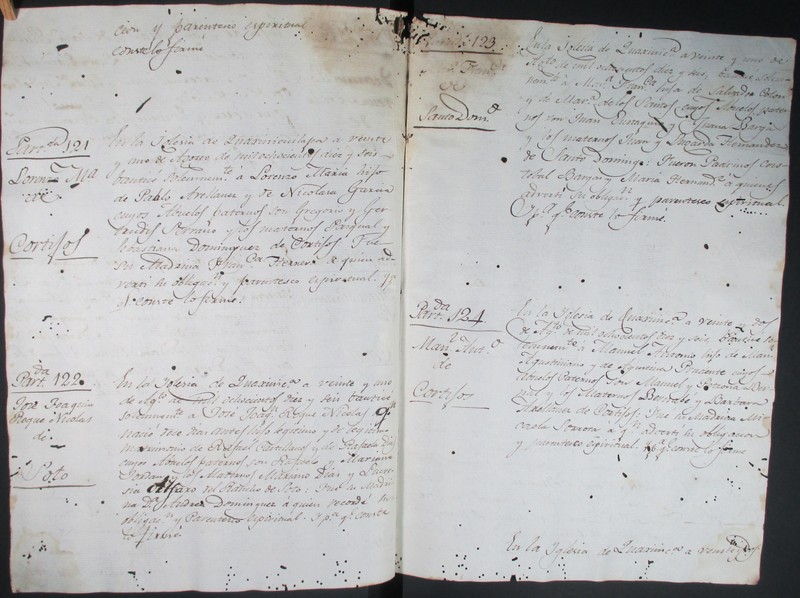 cion y parentesco espiritual
conste lo firmé
Part.da 121
Lorenzo Ma.
de
Cortijos
En la Iglesia de Quaxinicuilapa a veinte
y uno de Agosto de mil ochocientos diez y seis
bautizé solemnem.te a Lorenzo Maria hijo
de Pablo Arellanes y de Nicolasa Garcia
cuyos Abuelos paternos son Gregorio y Ger
trudis Serrano y los maternos Pasqual y
Sebastiana Dominguez de Cortijos Fue
su Madrina Fran.ca Herrera a quien ad
verti su obligac.n y parentesco espiritual. y p.a
q.e conste lo firmé.
Part.da 122
José Joaquin
Roque Nicolas
de
Soto
En la Iglesia de Quaxinic.a a veinte y uno
de Ag.to de mil ochocientos diez y seis bautizé
solemnemente a José Joaq.n Roque Nicolas q.e
nació dose dias antes hijo legitimo y de legitimo
matrimonio de Rafael Castellano y de Rafaela Diaz
cuyos Abuelos paternos son Rafael y Mariana
Jordan y los Maternos Mariano Diaz y Lucre
sia Alfaro de Soto: fue su Madri
na D.a Andrea Dominguez a quien recordé su
obligac.n y Parentesco espiritual. Y p.a q.e conste
lo firmé.
123
de
Santo Dom.o
En la Iglesia de Quaxinic.a a veinte y uno de
Ag.to de mil ochocientos diez y seis, bautizé solem
nem.te a Man.a Fran.ca hija de Salvador Colon
y de Mar.a de los Santos cuyos Abuelos pater
nos son Juan Eustaquio y Juana Barja
y los maternos Juan y Lucarda Hernandez
de Santo Domingo: Fueron Padrinos Cris
tobal Banjar y Maria Hernand.z a quienes
adverti su obligac.n y parentesco espiritual.
Y p.a q.e conste lo firmé.
Part.da 124
Man.l Ant.o
de
Cortijos
En la Iglesia de Quaxinic.a a veinte y dos
de Ag.to de mil ochocientos diez y seis, bautizé so
lemnem.te a Manuel Antonio hijo de Man.l
Agustiniano y de Aguelina Prudente cuyos A
buelos Paternos son Manuel y Feliciana Ber
y los Maternos Bernabe y Barbara
Arellanes de Cortijos: fue su Madrina Mi
caela Serrera a q.n adverti su obligacion
y parentesco Espiritual. Y p.a q.e conste lo firmé
En la Iglesia de Quaxinic.a a veinte y dos